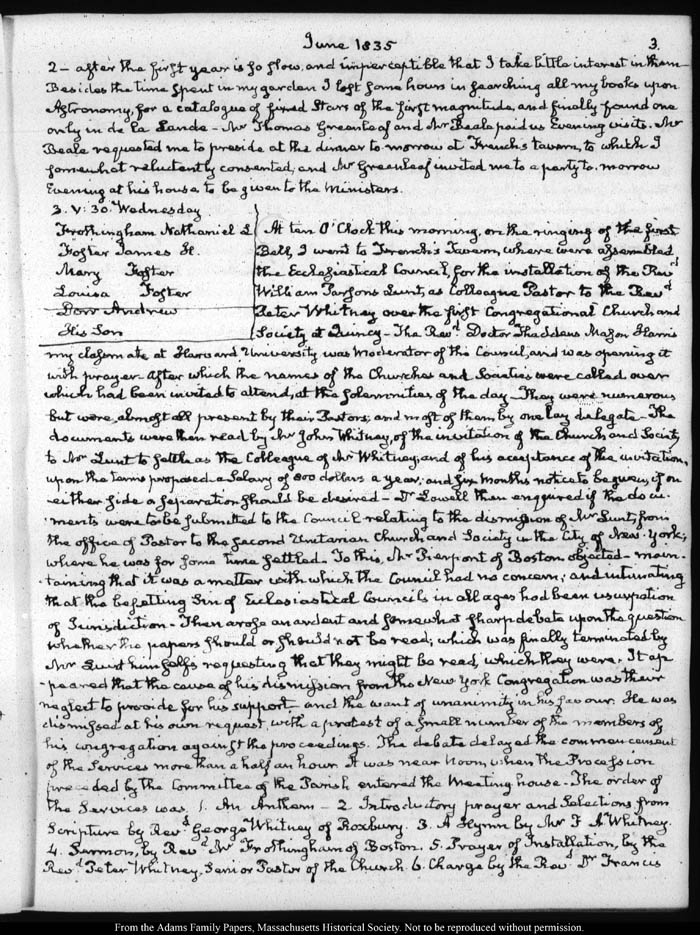 June 1835
3.
2 - after the first year is so slow, and imperceptible that I take little interest in them -
Besides the time spent in my garden I lost some hours in searching all my books upon
Astronomy, for a catalogue of fixed Stars of the first magnitude, and finally found one
only in de la Lande - Mr Thomas Greenleaf and Mr Beale paid us Evening visits. Mr
Beale requested me to preside at the dinner to morrow at French's tavern, to which I
somewhat reluctantly consented, and Mr Greenleaf invited me to a party to-morrow
Evening at his house to be given to the Ministers.
3. V: 30. Wednesday
Frothingham Nathaniel L
Foster James H.
Mary Foster
Louisa Foster
Dorr Andrew
His Son
At ten O'Clock this morning, on the ringing of the first
Bell, I went to French's Tavern, where were assembled
the Ecclesiastical Council, for the installation of the Revd
William Parsons Lunt, as Colleague Pastor to the Revd
Peter Whitney over the first Congregational Church and
Society at Quincy - The Revd Doctor Thaddeus Mason Harris
my classmate at Harvard University was Moderator of the Council, and was opening it
with prayer. After which the names of the Churches and Societies were called over
which had been invited to attend, at the solemnities of the day - They were numerous
but were almost all present by their Pastors; and most of them by one lay delegate - The
documents were then read by Mr John Whitney, of the invitation of the Church and Society
to Mr Lunt to settle as the Colleague of Mr Whitney, and of his acceptance of the invitation,
upon the terms proposed - a Salary of 800 dollars a year; and six months notice to be given, if on
either side a separation should be desired - Dr Lowell then enquired if the docu-
ments were to be submitted to the Council relating to the dismission of Mr Lunt, from
the office of Pastor to the second Unitarian Church, and Society in the City of New-York;
where he was for some time settled. To this, Mr Pierpont of Boston objected - main-
taining that it was a matter with which the Council had no concern; and intimating
that the besetting Sin of Ecclesiastical Councils in all ages had been usurpation
of Jurisdiction - Then arose an ardent and somewhat sharp debate upon the question
whether the papers should or should not be read; which was finally terminated by
Mr Lunt himself's requesting that they might be read, which they were. It ap-
peared that the cause of his dismission from the New York Congregation was their
neglect to provide for his support, and the want of unanimity in his favour. He was
dismissed at his own request, with a protest of a small number of the members of
his congregation against the proceedings. The debate delayed the commencement
of the Services more than a half an hour. It was near Noon, when the Procession
preceded by the Committee of the Parish entered the Meeting house - The order of
the Services was, 1. An Anthem - 2. Introductory prayer and Selections from
Scripture by Revd George Whitney of Roxbury. 3. A Hymn by Mr F A Whitney.
4. Sermon, by Revd Mr Frothingham of Boston. 5. Prayer of Installation, by the
Revd Peter Whitney, Senior Pastor of the Church. 6. Charge by the Revd Dr Francis
From the Adams Family Papers, Massachusetts Historical Society. Not to be reproduced without permission.